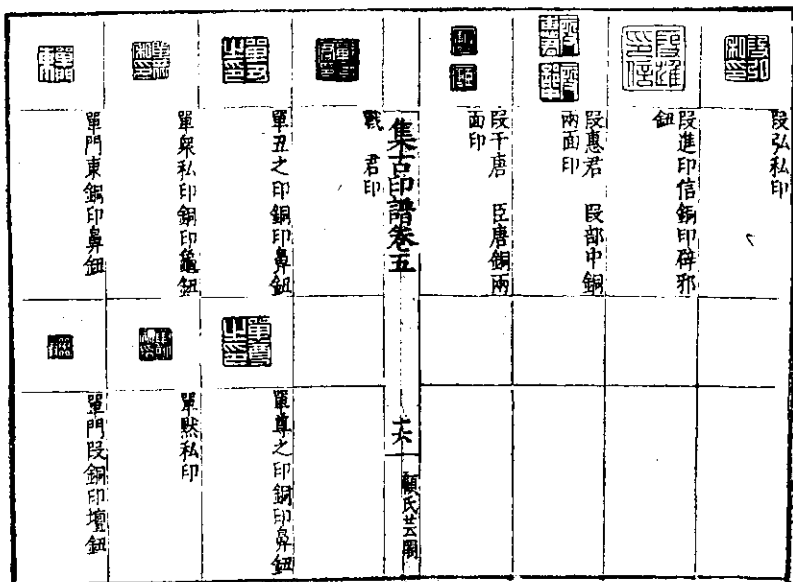 段弘私印
段進印信銅印辟邪
鈕
段惠君　段部中銅
兩面印
段干唐　臣唐銅兩
面印
集古印譜卷五
十六
顧氏芸閣
戰　君印
單丑之印銅印鼻鈕
單尊之印銅印鼻鈕
單衆私印銅印龜鈕
單默私印
單門東銅印鼻鈕
單門段銅印壇鈕